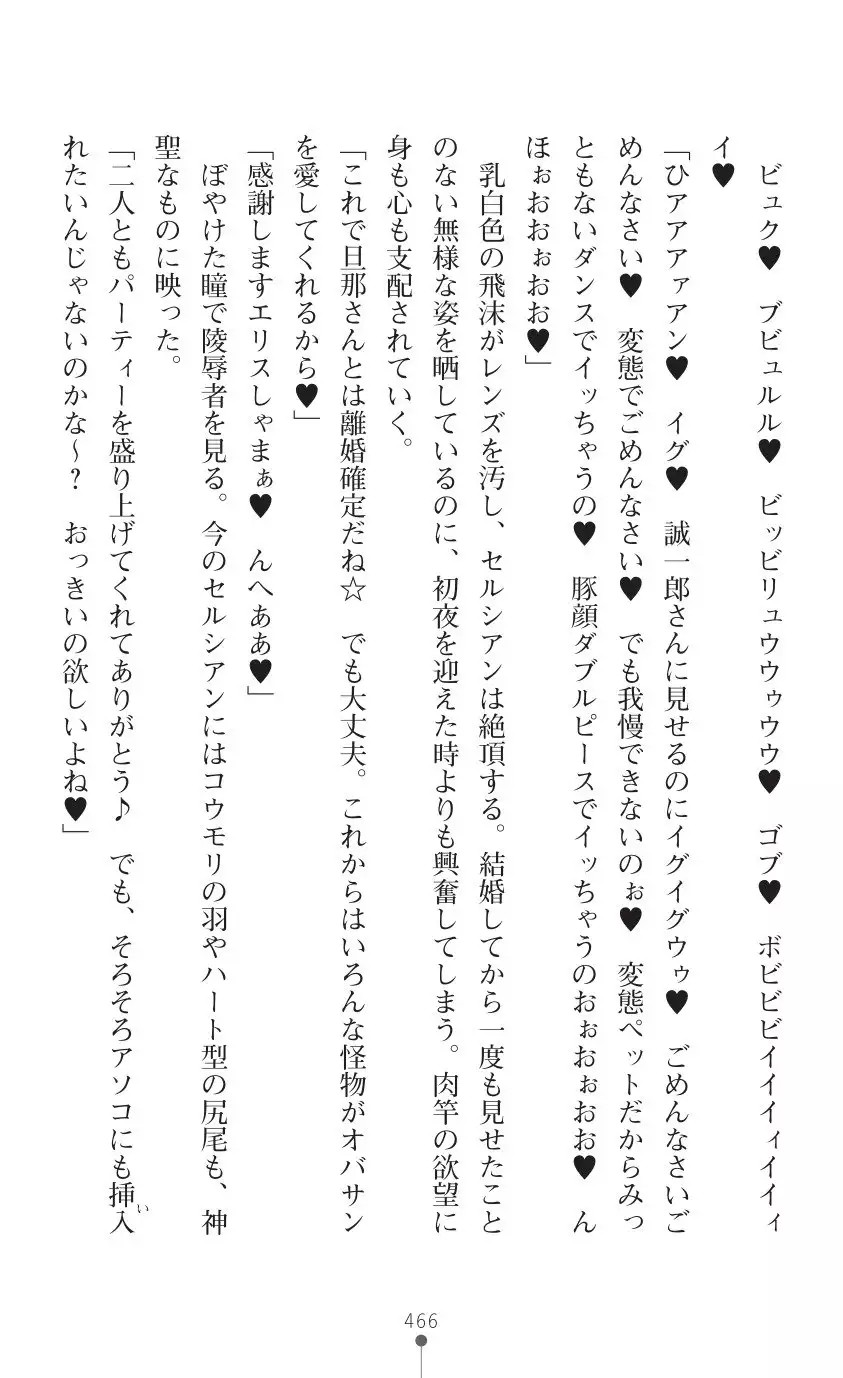 ビュク♥　ブビュルル♥　ビッビリュウウゥウウ♥　ゴブ♥　ボビビビイイイィイイィ
イ♥
「ひアアアァアン♥　イグ♥　誠一郎さんに見せるのにイグイグウゥ♥　ごめんなさいご
めんなさい♥　変態でごめんなさい♥　でも我慢できないのぉ♥　変態ペットだからみっ
ともないダンスでイッちゃうの♥　豚顔ダブルピースでイッちゃうのおぉおぉおお♥　ん
ほぉおおぉおお♥」
乳白色の飛沫がレンズを汚し、セルシアンは絶頂する。結婚してから一度も見せたこと
のない無様な姿を晒しているのに、初夜を迎えた時よりも興奮してしまう。肉竿の欲望に
身も心も支配されていく。
「これで旦那さんとは離婚確定だね☆　でも大丈夫。これからはいろんな怪物がオバサン
を愛してくれるから♥」
「感謝しますエリスしゃまぁ♥　んへああ♥」
ぼやけた瞳で陵辱者を見る。今のセルシアンにはコウモリの羽やハート型の尻尾も、神
聖なものに映った。
「二人ともパーティーを盛り上げてくれてありがとう♪　でも、そろそろアソコにも挿入
い
れたいんじゃないのかな～？　おっきいの欲しいよね♥」
466